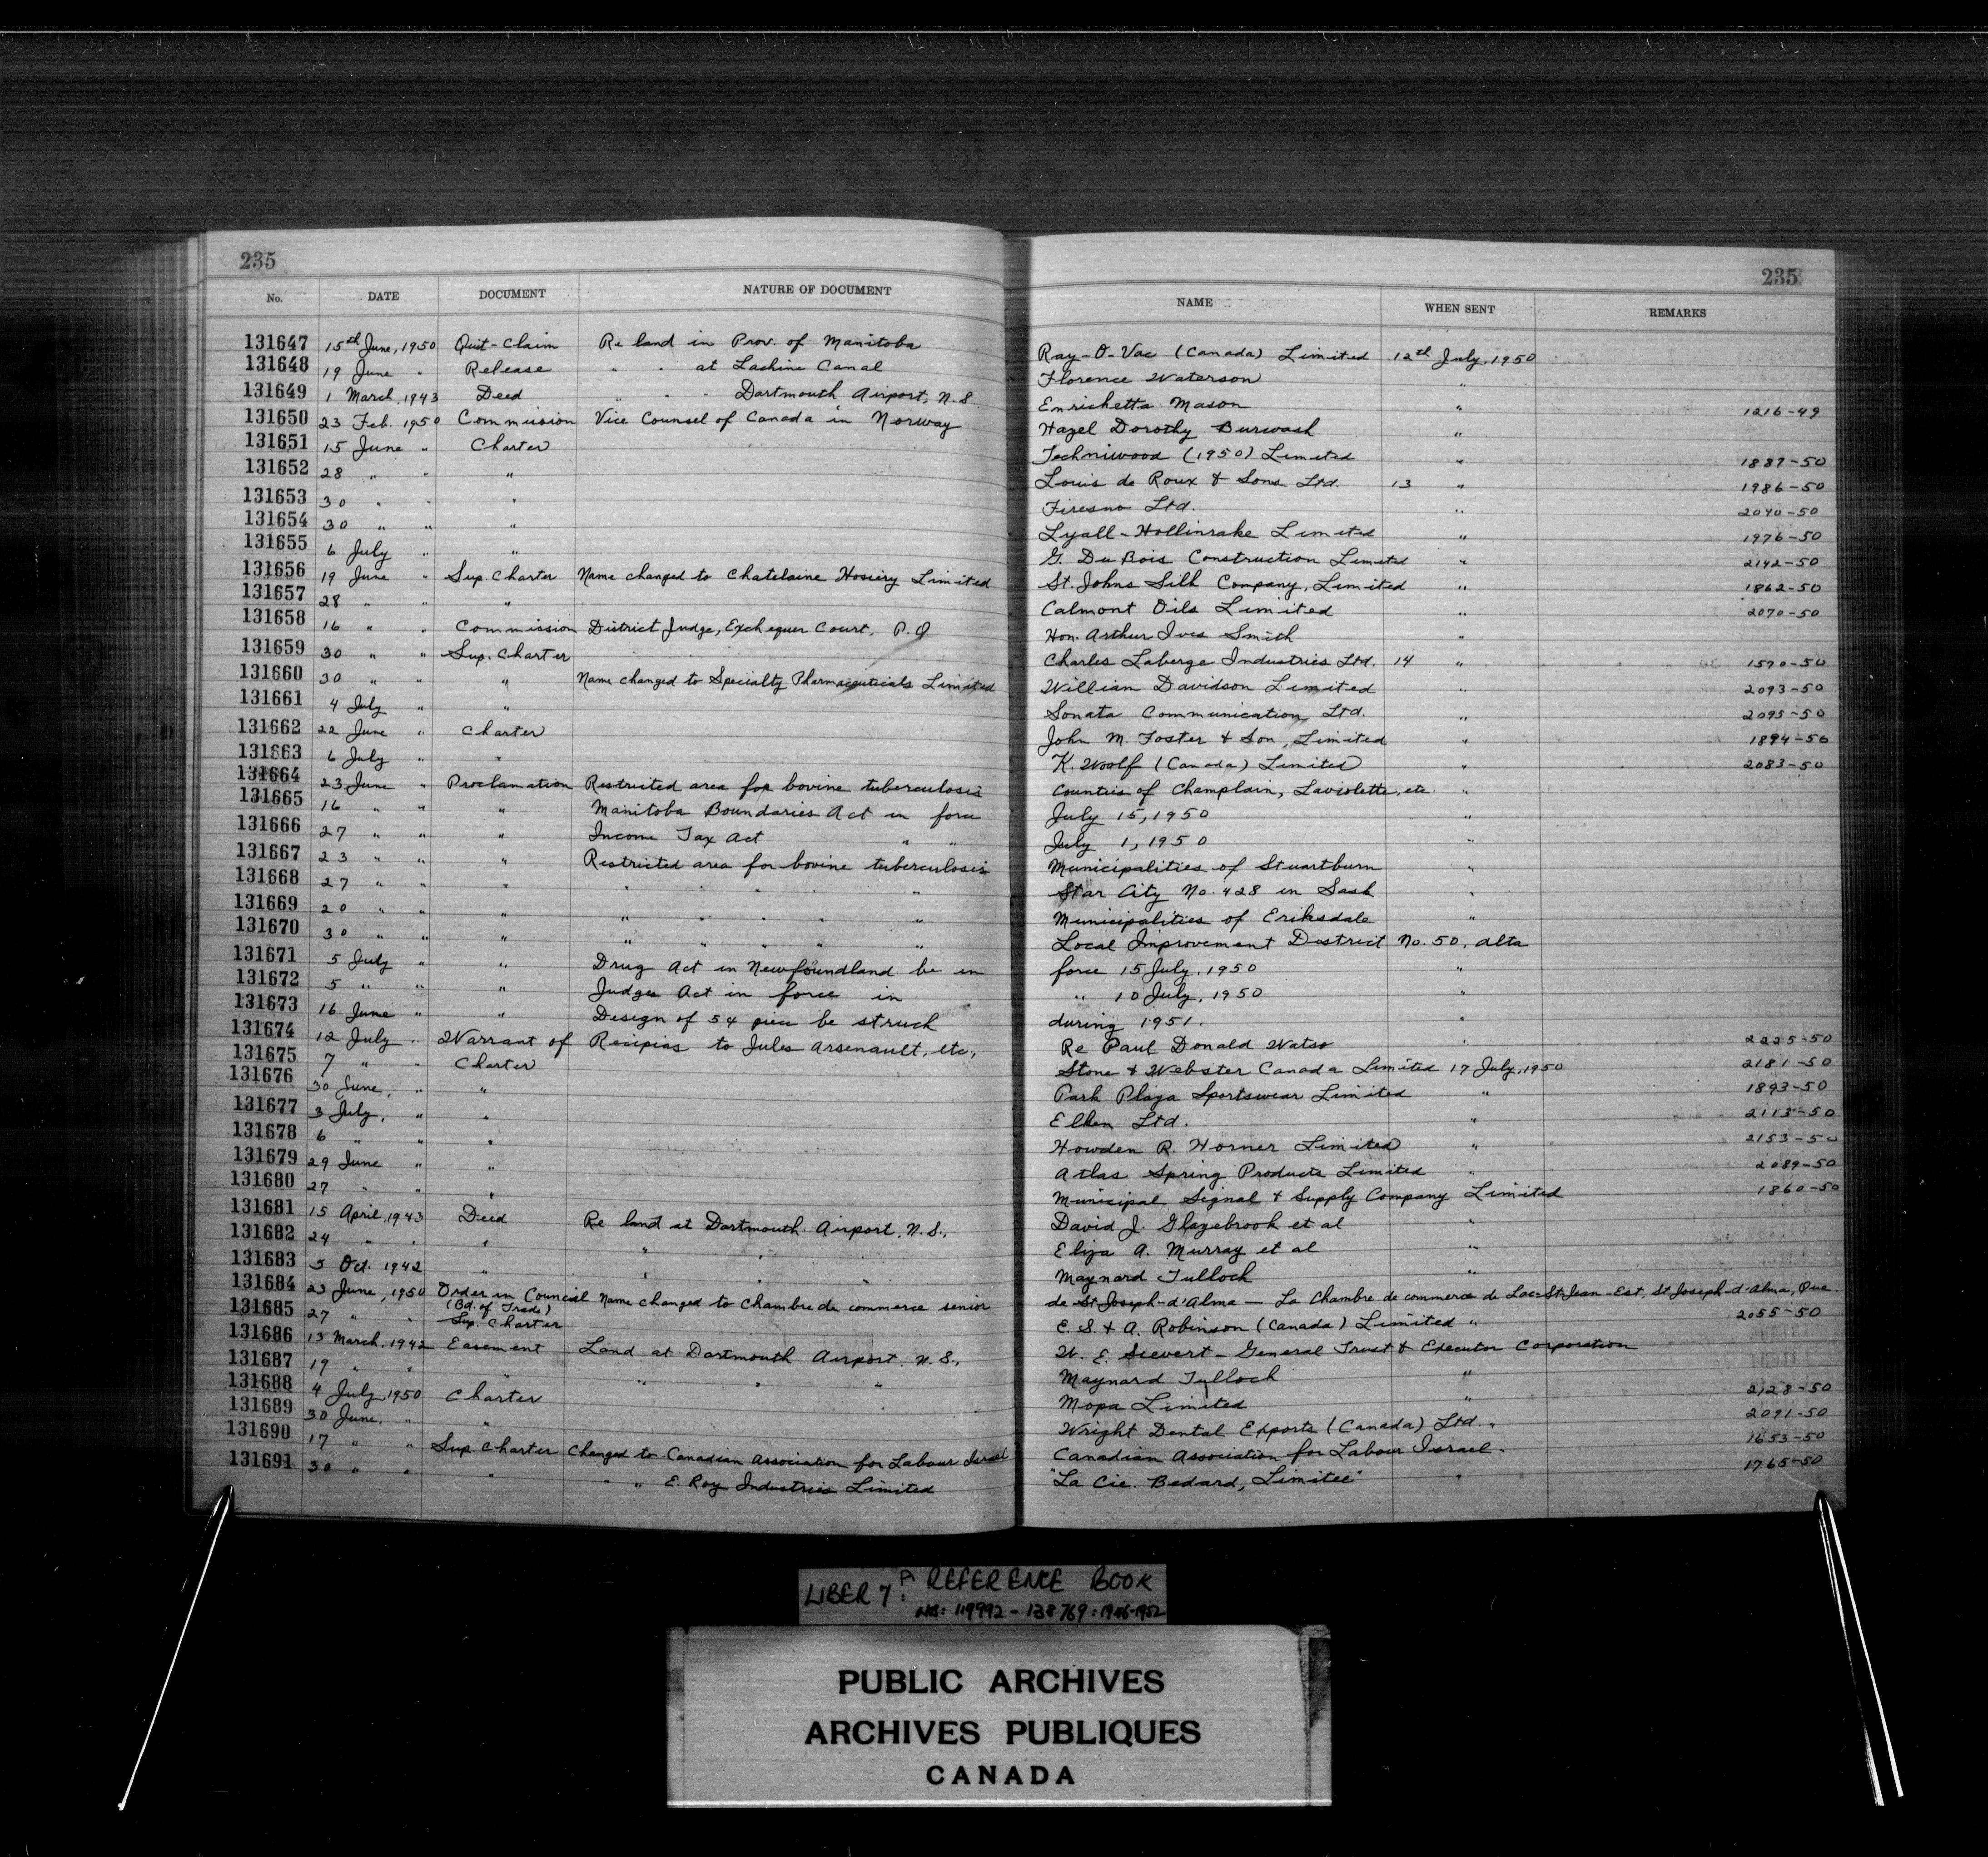 235 235
No. DATE DOCUMENT NATURE OF DOCUMENT NAME WHEN SENT REMARKS
131647 15th June, 1950 Quit-Claim Re land in Prov. of Manitoba Ray-O-Vac (Canada) Limited 12th July, 1950
131648 19 June " Release " " at Lachine Canal Florence Waterson "
131649 1 March, 1943 Deed " " " Dartmouth Airport, N.S. Enrichetta Mason " 1216-49
131650 23 Feb. 1950 Commission Vice Counsel of Canada in Norway Hazel Dorothy Burwash "
131651 15 June " Charter Techniwood (1950) Limited " 1887-50
131652 28 " " " Louis de Roux & Sons Ltd. 13 " 1986-50
131653 30 " " " Firesno Ltd. " 2040-50
131654 30 " " " Lyall-Hollinrake Limited " 1976-50
131655 6 July " " G. Du Bois Construction Limited " 2142-50
131656 19 June " Sup. Charter Name changed to Chatelaine Hosiery Limited St. Johns Silk Company, Limited " 1862-50
131657 28 " " " Calmont Oils Limited " 2070-50
131658 16 " " Commission District Judge, Exchequer Court, P.Q Hon. Arthur Ives Smith "
131659 30 " " Sup. Charter Charles Laberge Industries Ltd. 14 " 1570-50
131660 30 " " " Name changed to Specialty Pharmaceuticals Limited William Davidson Limited " 2093-50
131661 4 July " " Sonata Communication Ltd. " 2095-50
131662 22 June " Charter John M. Foster & Son, Limited " 1894-50
131663 6 July " " K. Woolf (Canada) Limited " 2083-50
131664 23 June " Proclamation Restricted area for bovine tuberculosis Counties of Champlain, Laviolette, etc. "
131665 16 " " " Manitoba Boundaries Act in force July 15, 1950 "
131666 27 " " " Income Tax Act " " July 1, 1950 "
131667 23 " " " Restricted area for bovine tuberculosis Municipalities of Stuartburn "
131668 27 " " " " " " " Star City No. 428 in Sask "
131669 20 " " " " " " " " Municipalities of Eriksdale "
131670 30 " " " " " " " " Local Improvement District No. 50, Alta
131671 5 July " " Drug Act in Newfoundland be in force 15 July, 1950 "
131672 5 " " " Judges Act in force in " 10 July, 1950 "
131673 16 June " " Design of 5¢ piece be struck during 1951. "
131674 12 July " Warrant of Recipias to Jules Arsenault, etc, Re Paul Donald Watso " 2225-50
131675 7 " " Charter Stone & Webster Canada Limited 17 July, 1950 2181-50
131676 30 June, " " Park Plaza Sportswear Limited " 1893-50
131677 3 July, " " Elken Ltd. " 2113-50
131678 6 " " " Howden R. Horner Limited " 2153-50
131679 29 June " " Atlas Spring Products Limited " 2089-50
131680 27 " " " Municipal Signal & Supply Company Limited 1860-50
131681 15 April, 1943 Deed Re land at Dartmouth Airport, N.S., David J. Glazebrook et al "
131682 24 " " " " " Eliza A. Murray et al "
131683 5 Oct. 1942 " " " " Maynard Tulloch "
131684 23 June, 1950 Order in Council Name changed to Chambre de commerce senior de St Joseph-d'Alma — La Chambre de commerce de Lac-St-Jean-Est, St Joseph-d'Alma, Que.
(Bd. of Trade)
131685 27 " " Sup. Charter E. S. & A. Robinson (Canada) Limited " 2055-50
131686 13 March, 1942 Easement Land at Dartmouth Airport, N.S., W. E. Sievert - General Trust & Executor Corporation
131687 19 " " " " " " Maynard Tulloch "
131688 4 July, 1950 Charter Mopa Limited " 2128-50
131689 30 June, " " Wright Dental Exports (Canada) Ltd. " 2091-50
131690 17 " " Sup. Charter Changed to Canadian Association for Labour Israel Canadian Association for Labour Israel. 1653-50
131691 30 " " " " " E. Roy Industries Limited "La Cie. Bedard, Limitee" " 1765-50
LIBER 7: A REFERENCE BOOK
NOS: 119992 - 138769: 1946-1952
PUBLIC ARCHIVES
ARCHIVES PUBLIQUES
CANADA